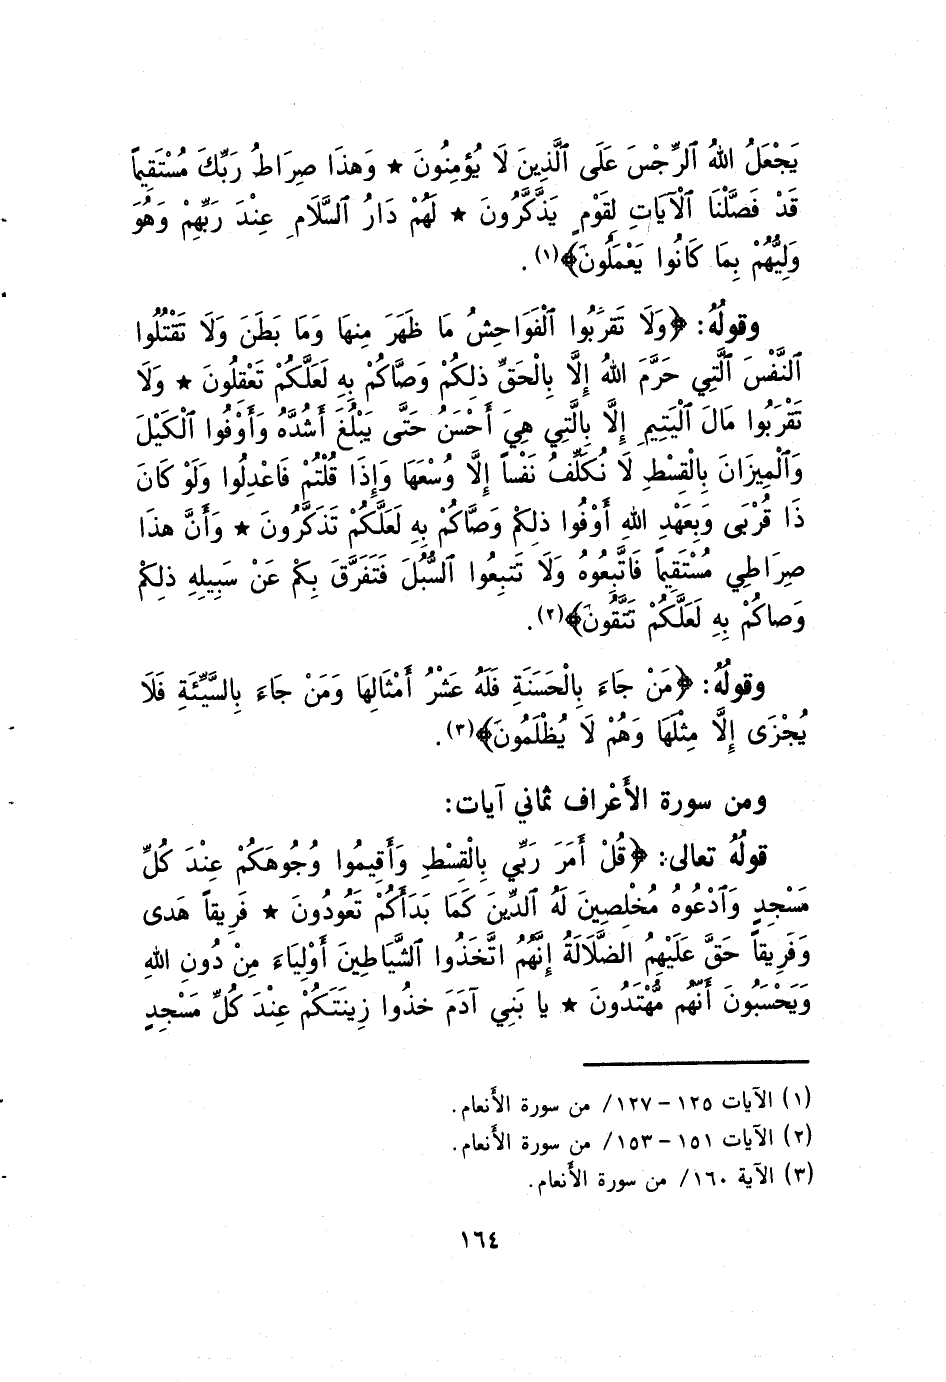 يَجْعَلُ اللهُ ٱلرِّجْسَ عَلَى ٱلَّذِينَ لَا يُؤمِنُونَ ★ وَهذَا صِرَاطُ رَبِّكَ مُسْتَقِيماً
قَدْ فَصَّلْنَا ٱلْآيَاتِ لِقَوْمٍ يَذَّكَّرُونَ ★ لَهُمْ دَارُ ٱلسَّلَامِ عِنْدَ رَبِّهِمْ وَهُوَ
وَلِيُّهُمْ بِمَا كَانُوا يَعْمَلُونَ﴾(١).
وقولُهُ: ﴿وَلَا تَقْرَبُوا ٱلْفَوَاحِشَ مَا ظَهَرَ مِنهَا وَمَا بَطَنَ وَلَا تَقْتُلُوا
ٱلنَّفْسَ ٱلَّتِي حَرَّمَ اللهُ إِلَّا بِالْحَقِّ ذلِكُمْ وَصَّاكُمْ بِهِ لَعَلَّكُمْ تَعْقِلُونَ ★ وَلَا
تَقْرَبُوا مَالَ ٱلْيَتِيمِ إِلَّا بِالَّتِي هِيَ أَحْسَنُ حَتَّى يَبْلُغَ أَشُدَّهُ وَأَوْفُوا ٱلْكَيْلَ
وَٱلْمِيزَانَ بِالْقِسْطِ لَا نُكَلِّفُ نَفْساً إِلَّا وُسْعَهَا وَإِذَا قُلْتُمْ فَاعْدِلُوا وَلَوْ كَانَ
ذَا قُرْبَى وَبِعَهْدِ اللهِ أَوْفُوا ذلِكُمْ وَصَّاكُمْ بِهِ لَعَلَّكُمْ تَذَكَّرُونَ ★ وَأَنَّ هذَا
صِرَاطِي مُسْتَقِيماً فَاتَّبِعُوهُ وَلَا تَتَّبِعُوا ٱلسُّبُلَ فَتَفَرَّقَ بِكُمْ عَنْ سَبِيلِهِ ذلِكُمْ
وَصاكُمْ بِهِ لَعَلَّكُمْ تَتَّقُونَ﴾(٢).
وقولُهُ: ﴿مَنْ جَاءَ بِالْحَسَنَةِ فَلَهُ عَشْرُ أَمْثَالِهَا وَمَنْ جَاءَ بِالسَّيِّئَةِ فَلَا
يُجْزَى إِلَّا مِثْلَهَا وَهُمْ لَا يُظْلَمُونَ﴾(٣).
ومن سورة الأَعْراف ثماني آيات:
قولُهُ تعالى: ﴿قُلْ أَمَرَ رَبِّي بِالْقِسْطِ وَأَقِيمُوا وُجُوهَكُمْ عِنْدَ كُلِّ
مَسْجِدٍ وَٱدْعُوهُ مُخْلِصِينَ لَهُ ٱلدِّينَ كَمَا بَدَأَكُمْ تَعُودُونَ ★ فَرِيقاً هَدى
وَفَرِيقاً حَقَّ عَلَيْهِمُ الضَّلَالَةُ إِنَّهُمُ اتَّخَذُوا ٱلشَّيَاطِينَ أَوْلِيَاءَ مِنْ دُونِ اللهِ
وَيَحْسَبُونَ أَنَّهُم مُّهْتَدُونَ ★ يا بَنِي آدَمَ خذُوا زِينَتَكُمْ عِنْدَ كُلِّ مَسْجِدٍ
(١) الآيات ١٢٥ – ١٢٧/ من سورة الأَنعام.
(٢) الآيات ١٥١ – ١٥٣/ من سورة الأنعام.
(٣) الآية ١٦٠/ من سورة الأَنعام.
١٦٤